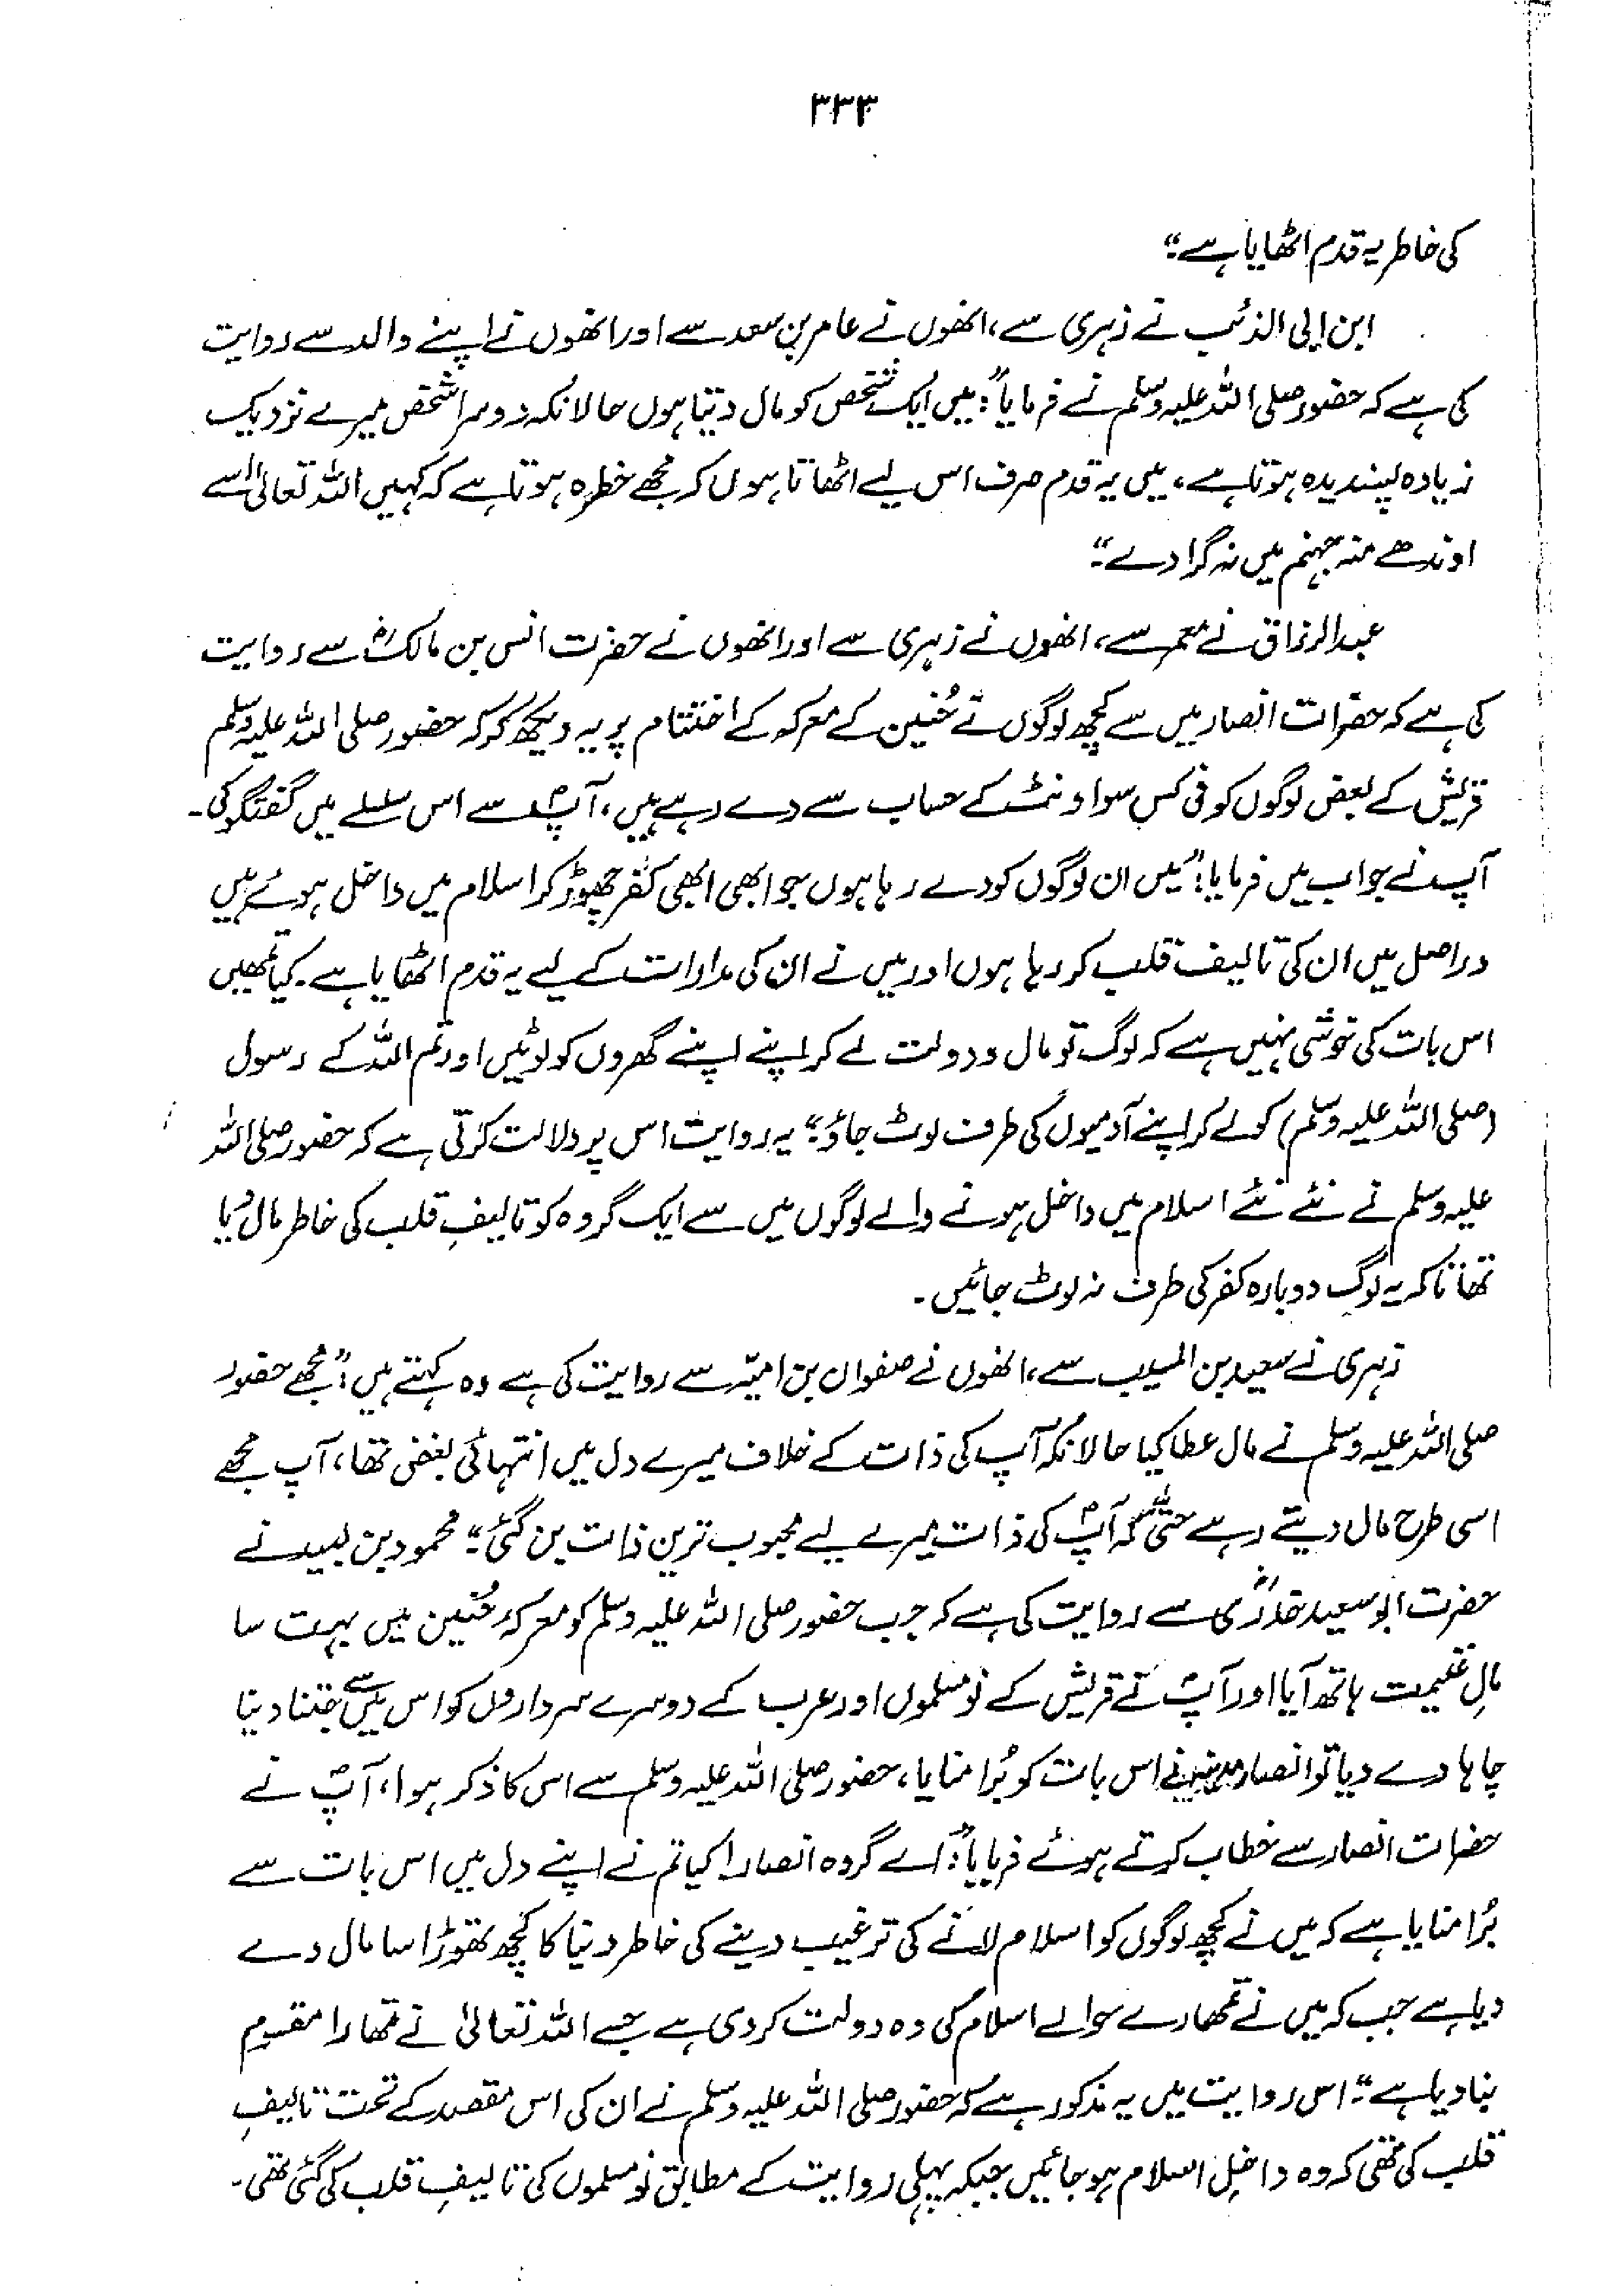 ۳۳۳
کی خاطر یہ قدم اٹھایا ہے۔"
ابن ابی الذئب نے زہری سے، انھوں نے عامر بن سعد سے اور انھوں نے اپنے والد سے روایت
کی ہے کہ حضور صلی اللہ علیہ وسلم نے فرمایا: "میں ایک شخص کو مال دیتا ہوں حالانکہ دوسرا شخص میرے نزدیک
زیادہ پسندیدہ ہوتا ہے، میں یہ قدم صرف اس لیے اٹھاتا ہوں کہ مجھے خطرہ ہوتا ہے کہ کہیں اللہ تعالیٰ اسے
اوندھے منہ جہنم میں نہ گرا دے۔"
عبدالرزاق نے معمر سے، انھوں نے زہری سے اور انھوں نے حضرت انس بن مالکؓ سے روایت
کی ہے کہ حضرات انصار میں سے کچھ لوگوں نے حُنین کے معرکہ کے اختتام پر یہ دیکھ کر کہ حضور صلی اللہ علیہ وسلم
قریش کے بعض لوگوں کو فی کس سو اونٹ کے حساب سے دے رہے ہیں، آپؐ سے اس سلسلے میں گفتگو کی۔
آپ نے جواب میں فرمایا: "میں ان لوگوں کو دے رہا ہوں جو ابھی ابھی کفر چھوڑ کر اسلام میں داخل ہوئے ہیں
دراصل میں ان کی تالیف قلب کر رہا ہوں اور میں نے ان کی مدارات کے لیے یہ قدم اٹھایا ہے۔ کیا تمھیں
اس بات کی خوشی نہیں ہے کہ لوگ تو مال و دولت لے کر اپنے اپنے گھروں کو لوٹیں اور تم اللہ کے رسول
(صلی اللہ علیہ وسلم) کو لے کر اپنے آدمیوں کی طرف لوٹ جاؤ۔" یہ روایت اس پر دلالت کرتی ہے کہ حضور صلی اللہ
علیہ وسلم نے نئے نئے اسلام میں داخل ہونے والے لوگوں میں سے ایک گروہ کو تالیفِ قلب کی خاطر مال دیا
تھا تاکہ یہ لوگ دوبارہ کفر کی طرف نہ لوٹ جائیں۔
زہری نے سعید بن المسیب سے، انھوں نے صفوان بن امیّہ سے روایت کی ہے وہ کہتے ہیں: "مجھے حضور
صلی اللہ علیہ وسلم نے مال عطا کیا حالانکہ آپ کی ذات کے خلاف میرے دل میں انتہائی بغض تھا، آپ مجھے
اسی طرح مال دیتے رہے حتیٰ کہ آپؐ کی ذات میرے لیے محبوب ترین ذات بن گئی۔" محمود بن لبید نے
حضرت ابو سعید خدریؓ سے روایت کی ہے کہ جب حضور صلی اللہ علیہ وسلم کو معرکۂ حُنین میں بہت سا
مالِ غنیمت ہاتھ آیا اور آپؐ نے قریش کے نو مسلموں اور عرب کے دوسرے سرداروں کو اس میں سے جتنا دینا
چاہا دے دیا تو انصار مدینہ نے اس بات کو بُرا منایا، حضور صلی اللہ علیہ وسلم سے اس کا ذکر ہوا، آپؐ نے
حضرات انصار سے خطاب کرتے ہوئے فرمایا: "اے گروہ انصار! کیا تم نے اپنے دل میں اس بات سے
بُرا منایا ہے کہ میں نے کچھ لوگوں کو اسلام لانے کی ترغیب دینے کی خاطر دنیا کا کچھ تھوڑا سا مال دے
دیا ہے جب کہ میں نے تمھارے حوالے اسلام کی وہ دولت کر دی ہے جسے اللہ تعالیٰ نے تمھارا مقسوم
بنا دیا ہے۔" اس روایت میں یہ مذکور ہے کہ حضور صلی اللہ علیہ وسلم نے ان کی اس مقصد کے تحت تالیفِ
قلب کی تھی کہ وہ داخلِ اسلام ہو جائیں جبکہ پہلی روایت کے مطابق نو مسلموں کی تالیفِ قلب کی گئی تھی۔